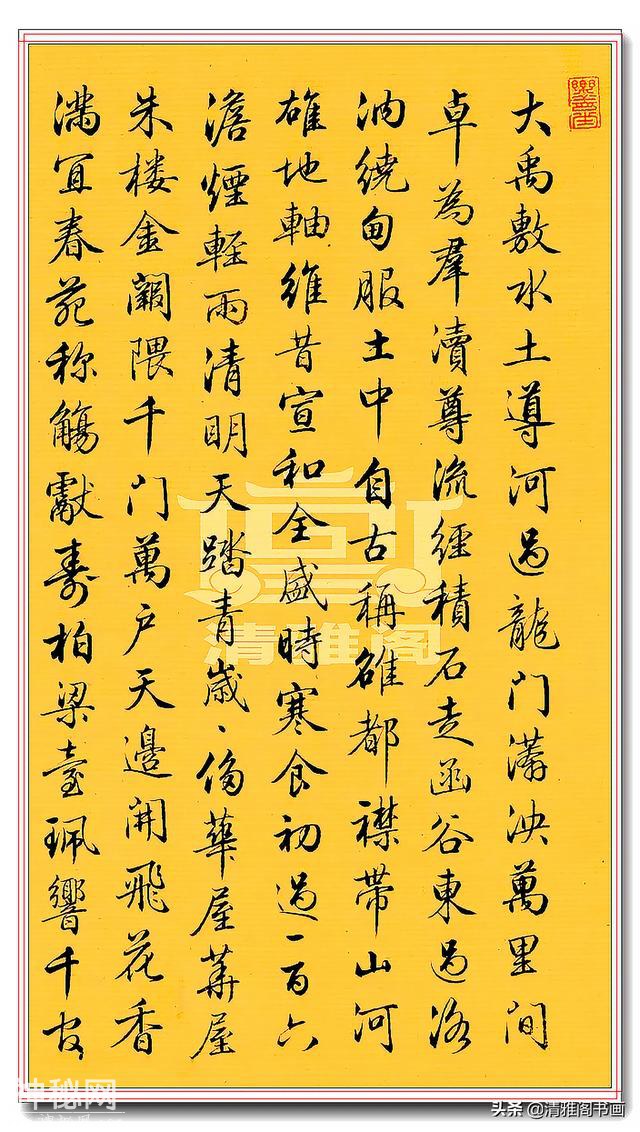 大禹敷水土導河過龍門泱萬里間
卓為羣瀆尊流經積石走函谷東過洛
汭繞甸服土中自古稱雄都襟帶山河
雄地軸維昔宣和全盛時寒食初過一百六
澹煙輕雨清明天踏青歲、侈華屋華屋
朱樓金闕隈千門萬戶天邊開飛花香
滿宜春苑称觴獻壽柏梁臺珮響千官
清雅阁
神秘网
头条 @清雅阁书画